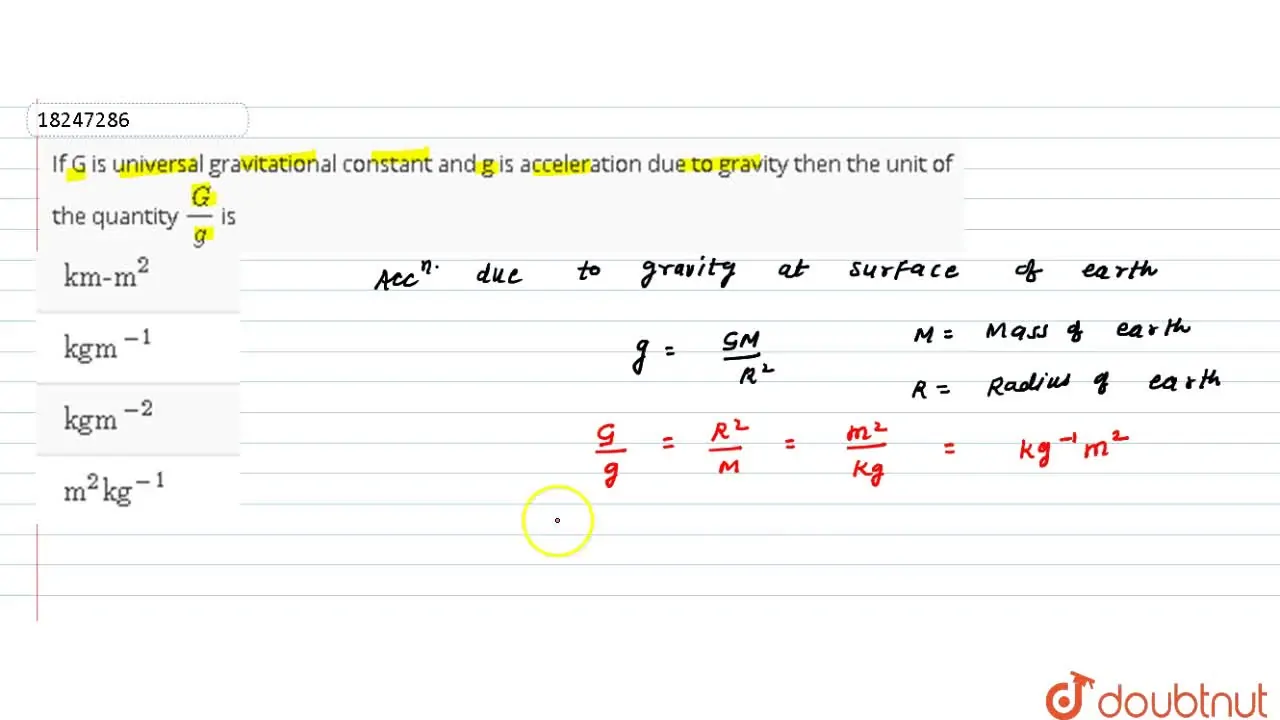 18247286
If G is universal gravitational constant and g is acceleration due to gravity then the unit of
the quantity G/g is
km-m²
kgm⁻¹
kgm⁻²
m²kg⁻¹
Accⁿ· due to gravity at surface of earth
g = GM/R²
M = Mass of earth
R = Radius of earth
G/g = R²/M = m²/kg = kg⁻¹m²
doubtnut